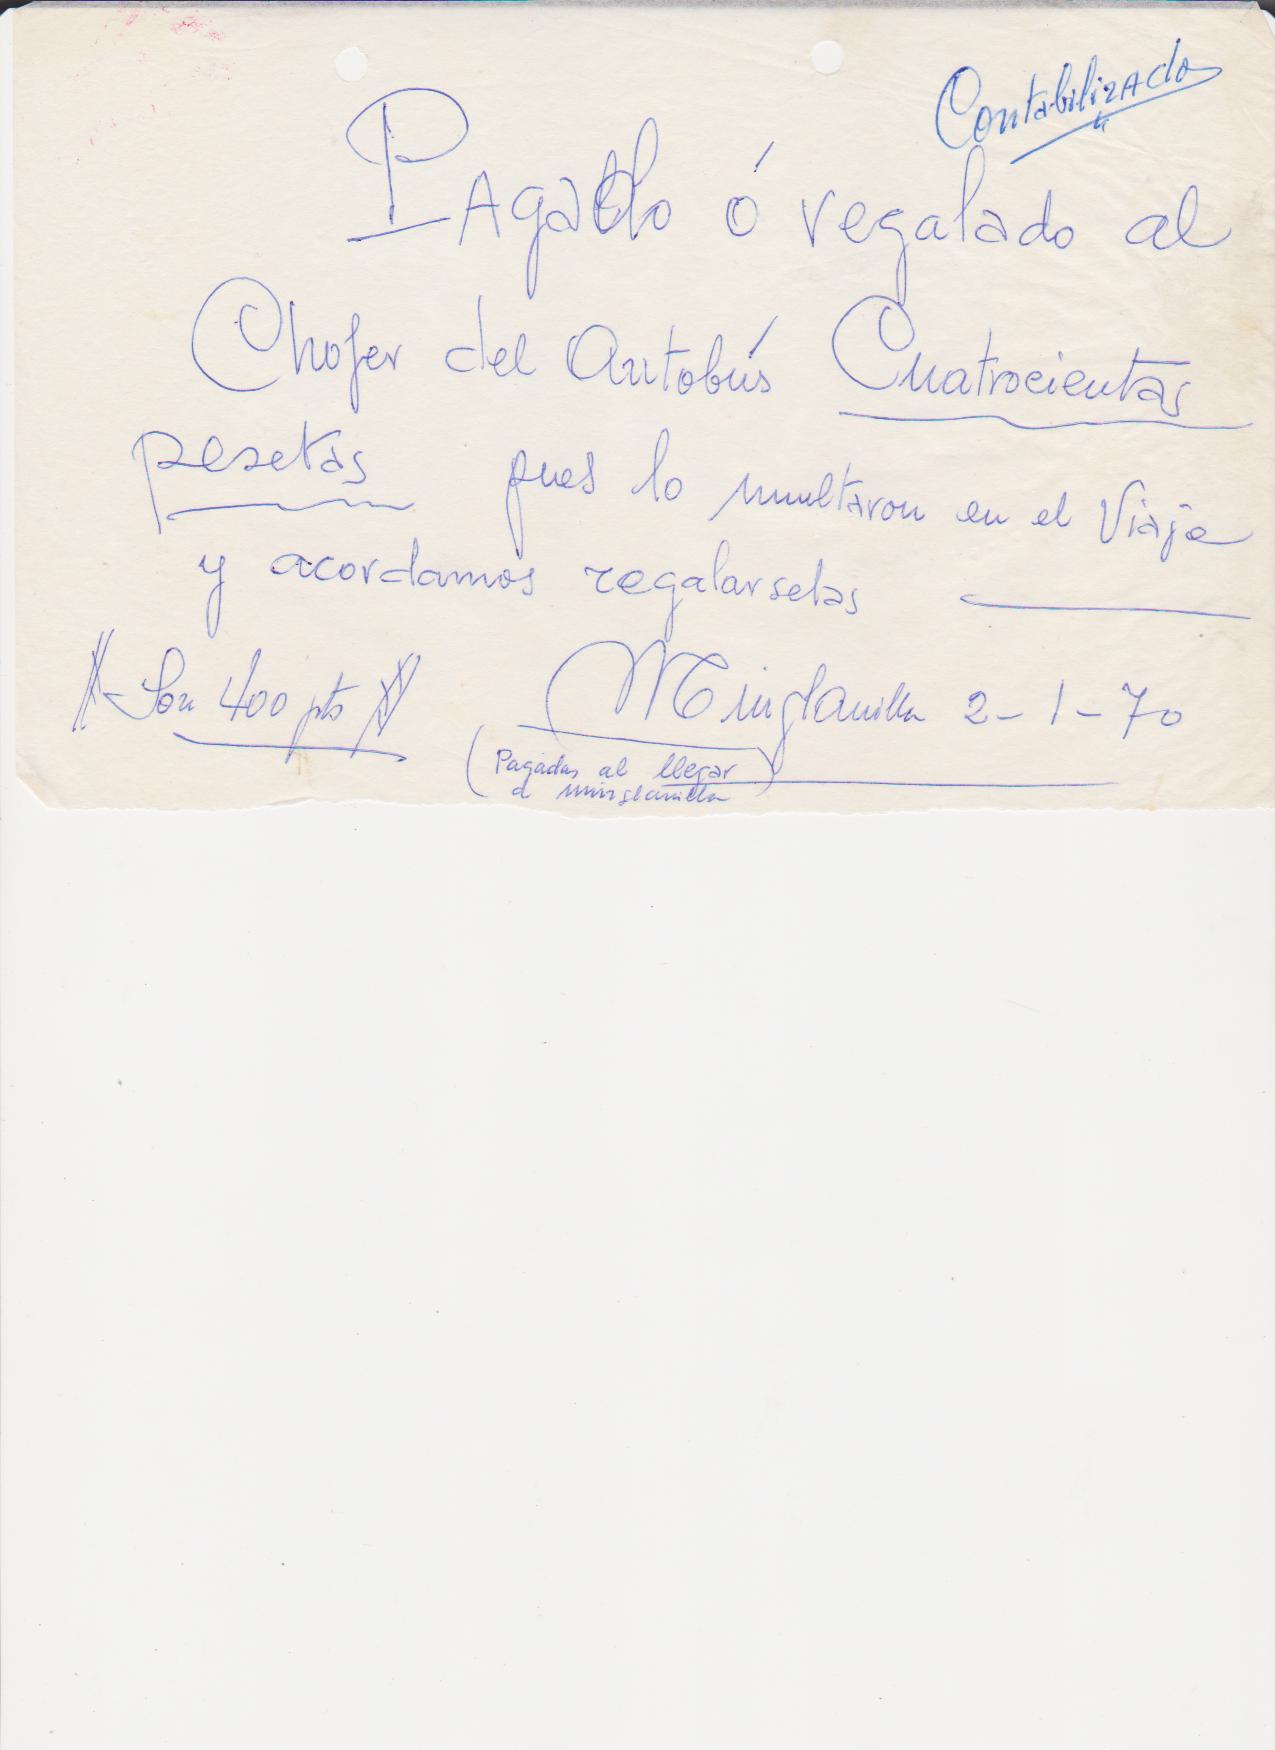 Contabilizado
Pagado ó regalado al
Chofer del Autobús Cuatrocientas
pesetas pues lo multaron en el Viaje
y acordamos regalarselas
Son 400 pts Minglanilla 2-1-70
(Pagadas al llegar
a minglanilla)